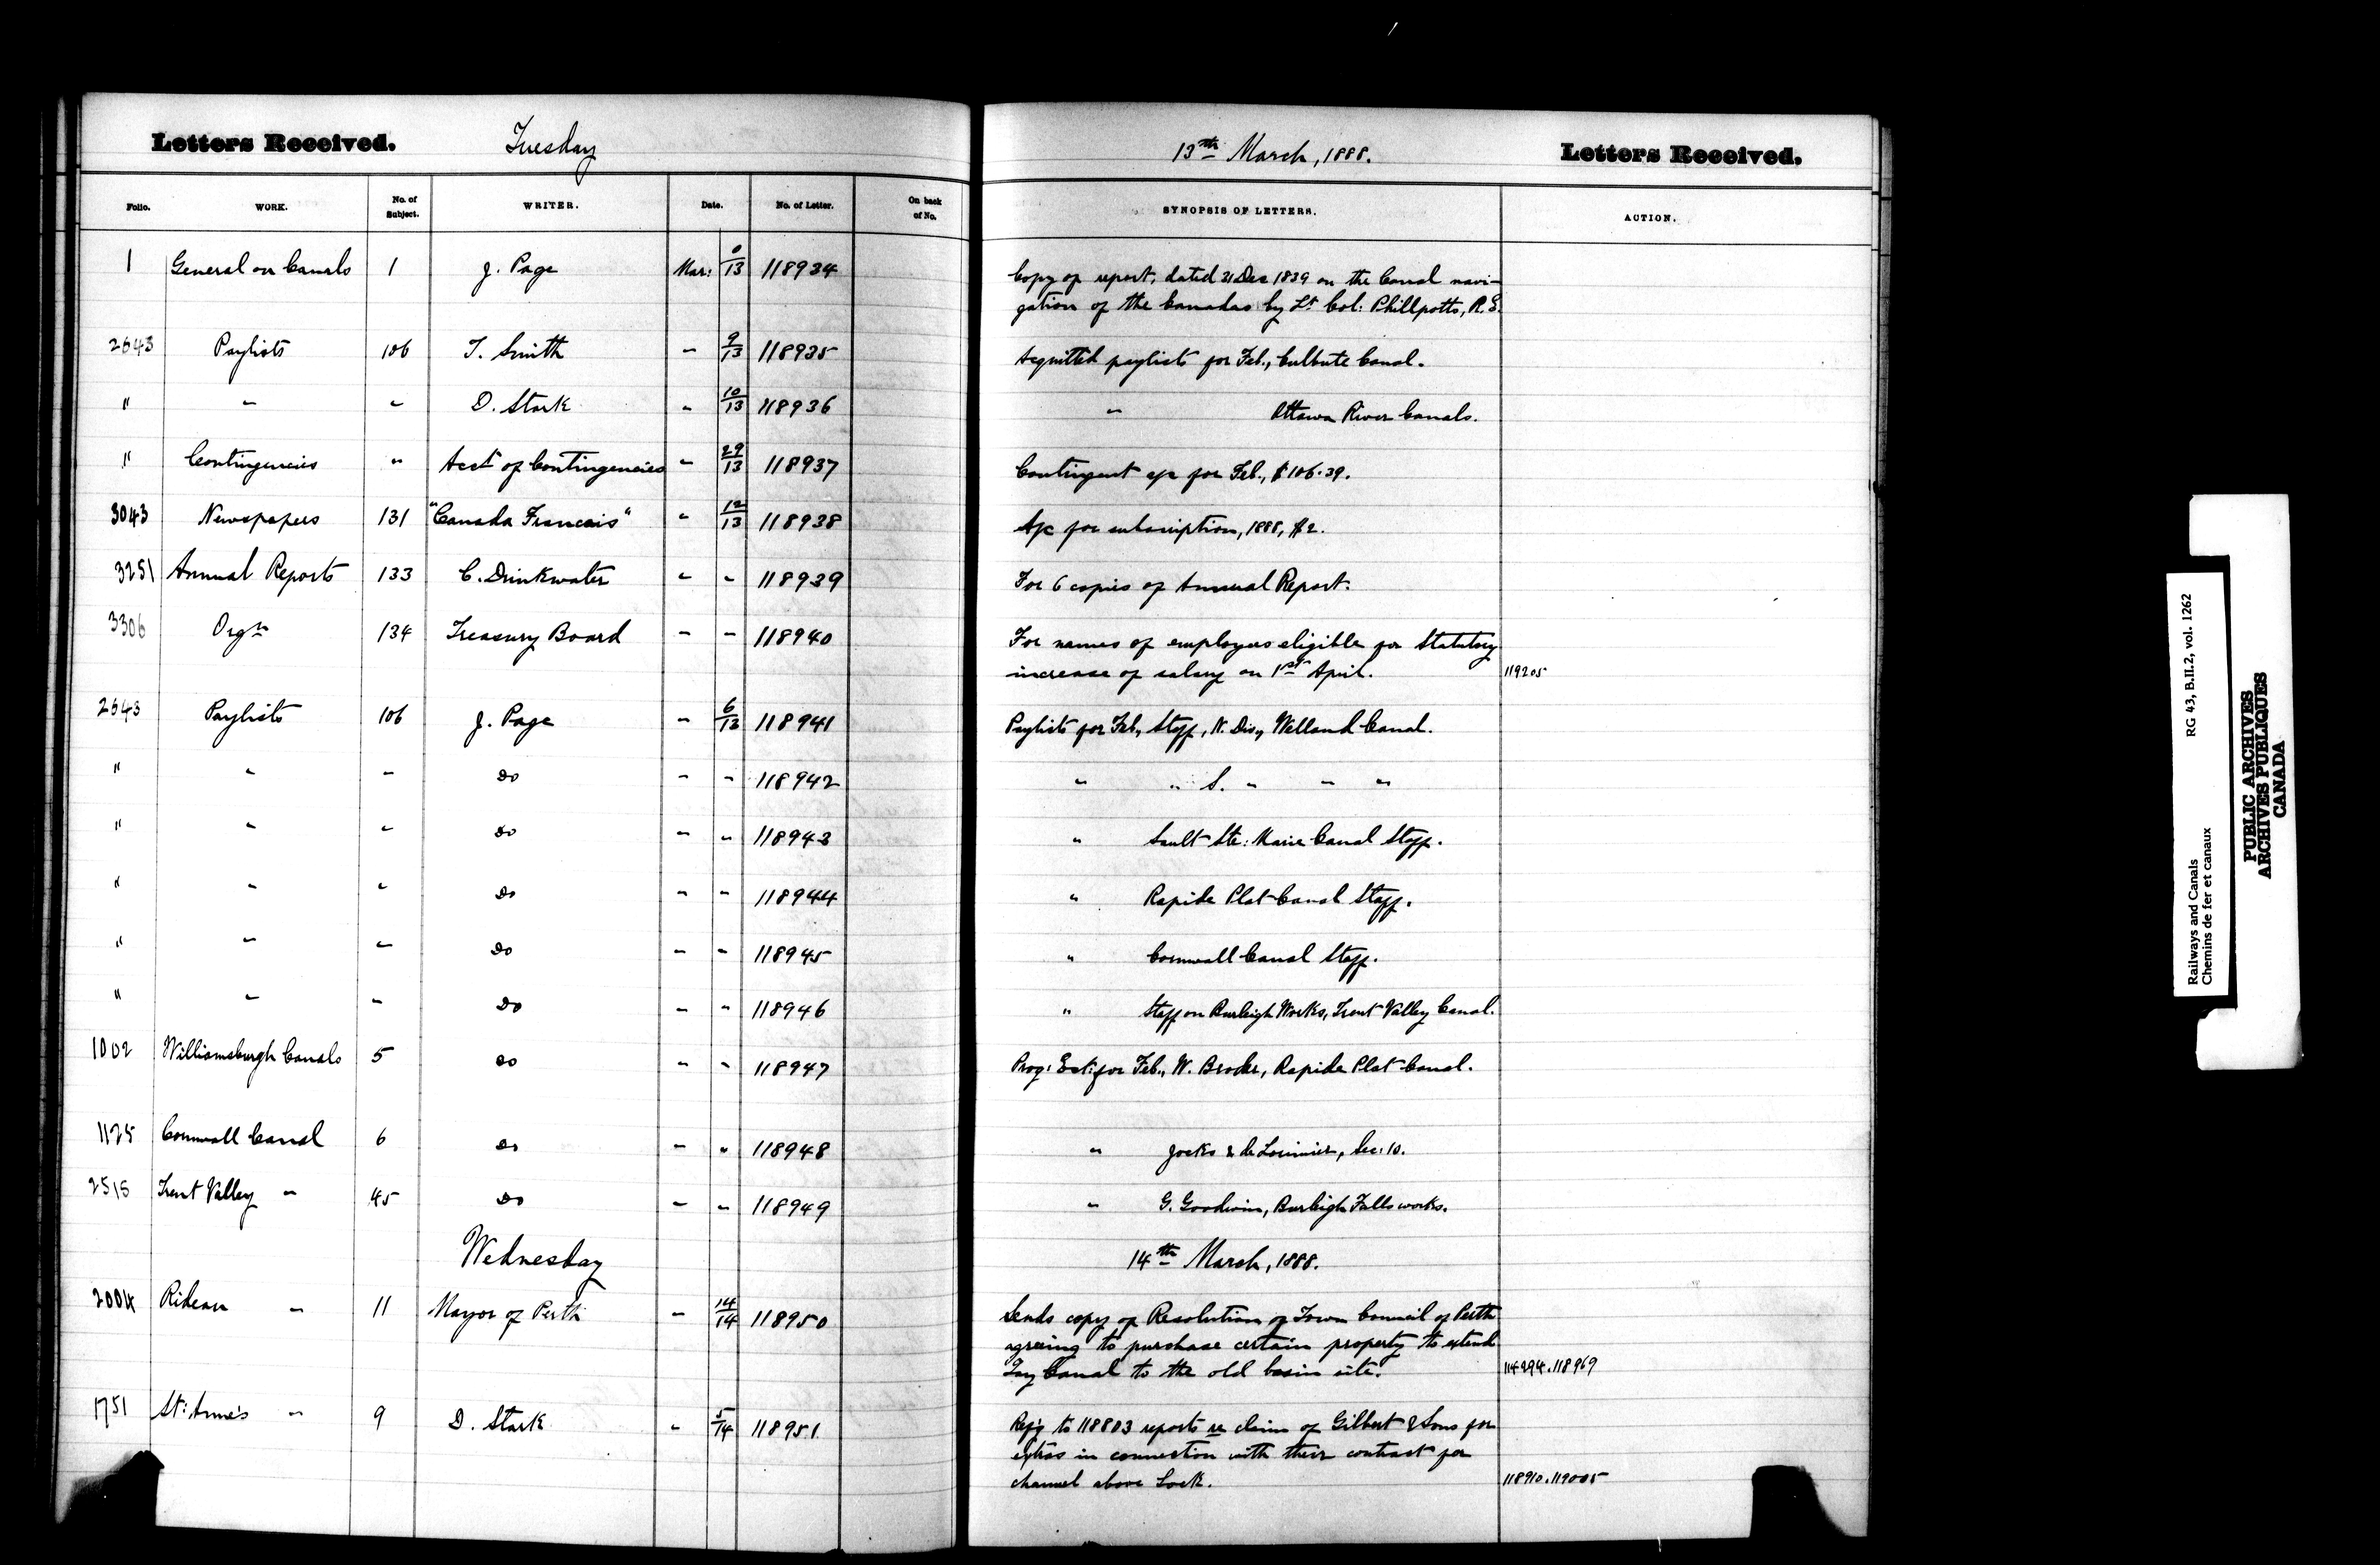 Letters Received. Tuesday
Folio. WORK. No. of Subject. WRITER. Date. No. of Letter. On back of No.
1 General on Canals 1 J. Page Mar: 0/13 118934
2643 Paylists 106 T. Smith " 9/13 118935
" " " D. Stark " 10/13 118936
" Contingencies " Acct of Contingencies " 29/13 118937
3043 Newspapers 131 "Canada Francais" " 12/13 118938
3251 Annual Reports 133 C. Drinkwater " " 118939
3306 Orgn 134 Treasury Board " " 118940
2643 Paylists 106 J. Page " 6/13 118941
" " " Do " " 118942
" " " Do " " 118943
" " " Do " " 118944
" " " Do " " 118945
" " " Do " " 118946
1002 Williamsburgh Canals 5 Do " " 118947
1125 Cornwall Canal 6 Do " " 118948
2515 Trent Valley " 45 Do " " 118949
Wednesday
2004 Rideau " 11 Mayor of Perth " 14/14 118950
1751 St: Anne's " 9 D. Stark " 5/14 118951
13th March, 1888. Letters Received.
SYNOPSIS OF LETTERS. ACTION.
Copy of report, dated 31 Dec 1839 on the Canal navi-
gation of the Canadas by Lt Col: Phillpotts, R.E.
Acquitted paylists for Feb., Culbute Canal.
" Ottawa River Canals.
Contingent a/c for Feb., $106.39.
A/c for subscription, 1888, $2.
For 6 copies of Annual Report.
For names of employees eligible for Statutory
increase of salary on 1st April. 119205
Paylists for Feb, Staff, N. Div., Welland Canal.
" " S. " " "
" Sault Ste: Marie Canal Staff.
" Rapide Plat Canal Staff.
" Cornwall Canal Staff.
" Staff on Burleigh Works, Trent Valley Canal.
Prog: Est: for Feb., W. Broder, Rapide Plat Canal.
" Jocks & de Lorimier, Sec: 10.
" G. Goodwin, Burleigh Falls works.
14th March, 1888.
Sends copy of Resolution of Town Council of Perth
agreeing to purchase certain property to extend
Tay Canal to the old basin site. 114294. 118969
Ref'g to 118803 reports re claim of Gilbert & Sons for
extras in connection with their contract for
channel above Lock. 118910. 119005
Railways and Canals RG 43, B.II.2, vol. 1262
Chemins de fer et canaux
PUBLIC ARCHIVES
ARCHIVES PUBLIQUES
CANADA